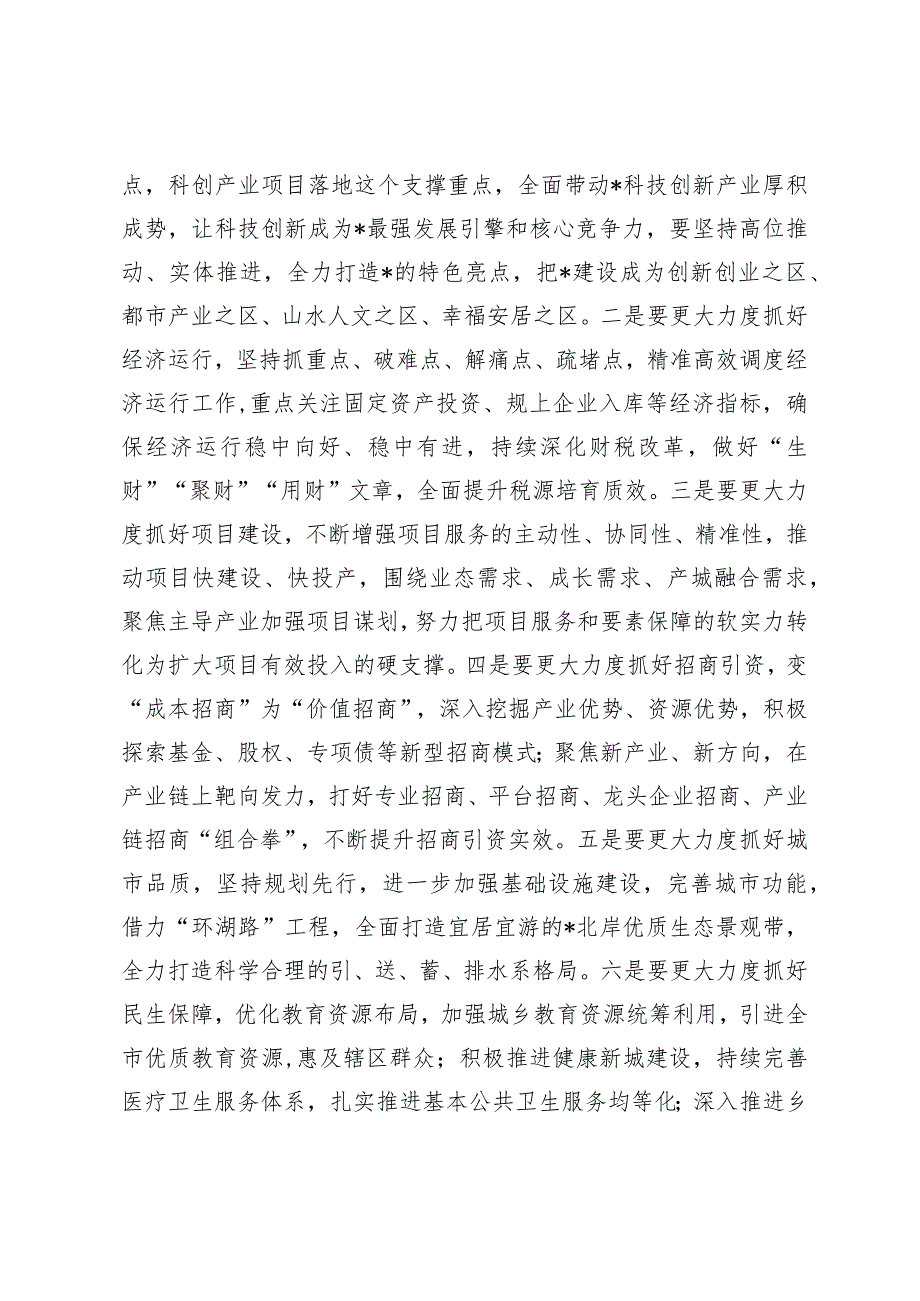 点，科创产业项目落地这个支撑重点，全面带动*科技创新产业厚积
成势，让科技创新成为*最强发展引擎和核心竞争力，要坚持高位推
动、实体推进，全力打造*的特色亮点，把*建设成为创新创业之区、
都市产业之区、山水人文之区、幸福安居之区。二是要更大力度抓好
经济运行，坚持抓重点、破难点、解痛点、疏堵点，精准高效调度经
济运行工作,重点关注固定资产投资、规上企业入库等经济指标，确
保经济运行稳中向好、稳中有进，持续深化财税改革，做好“生
财”“聚财”“用财”文章，全面提升税源培育质效。三是要更大力
度抓好项目建设，不断增强项目服务的主动性、协同性、精准性，推
动项目快建设、快投产，围绕业态需求、成长需求、产城融合需求，
聚焦主导产业加强项目谋划,努力把项目服务和要素保障的软实力转
化为扩大项目有效投入的硬支撑。四是要更大力度抓好招商引资，变
“成本招商”为“价值招商”，深入挖掘产业优势、资源优势，积极
探索基金、股权、专项债等新型招商模式；聚焦新产业、新方向，在
产业链上靶向发力，打好专业招商、平台招商、龙头企业招商、产业
链招商“组合拳”，不断提升招商引资实效。五是要更大力度抓好城
市品质，坚持规划先行，进一步加强基础设施建设，完善城市功能，
借力“环湖路”工程，全面打造宜居宜游的*北岸优质生态景观带，
全力打造科学合理的引、送、蓄、排水系格局。六是要更大力度抓好
民生保障，优化教育资源布局，加强城乡教育资源统筹利用，引进全
市优质教育资源,惠及辖区群众；积极推进健康新城建设，持续完善
医疗卫生服务体系，扎实推进基本公共卫生服务均等化；深入推进乡